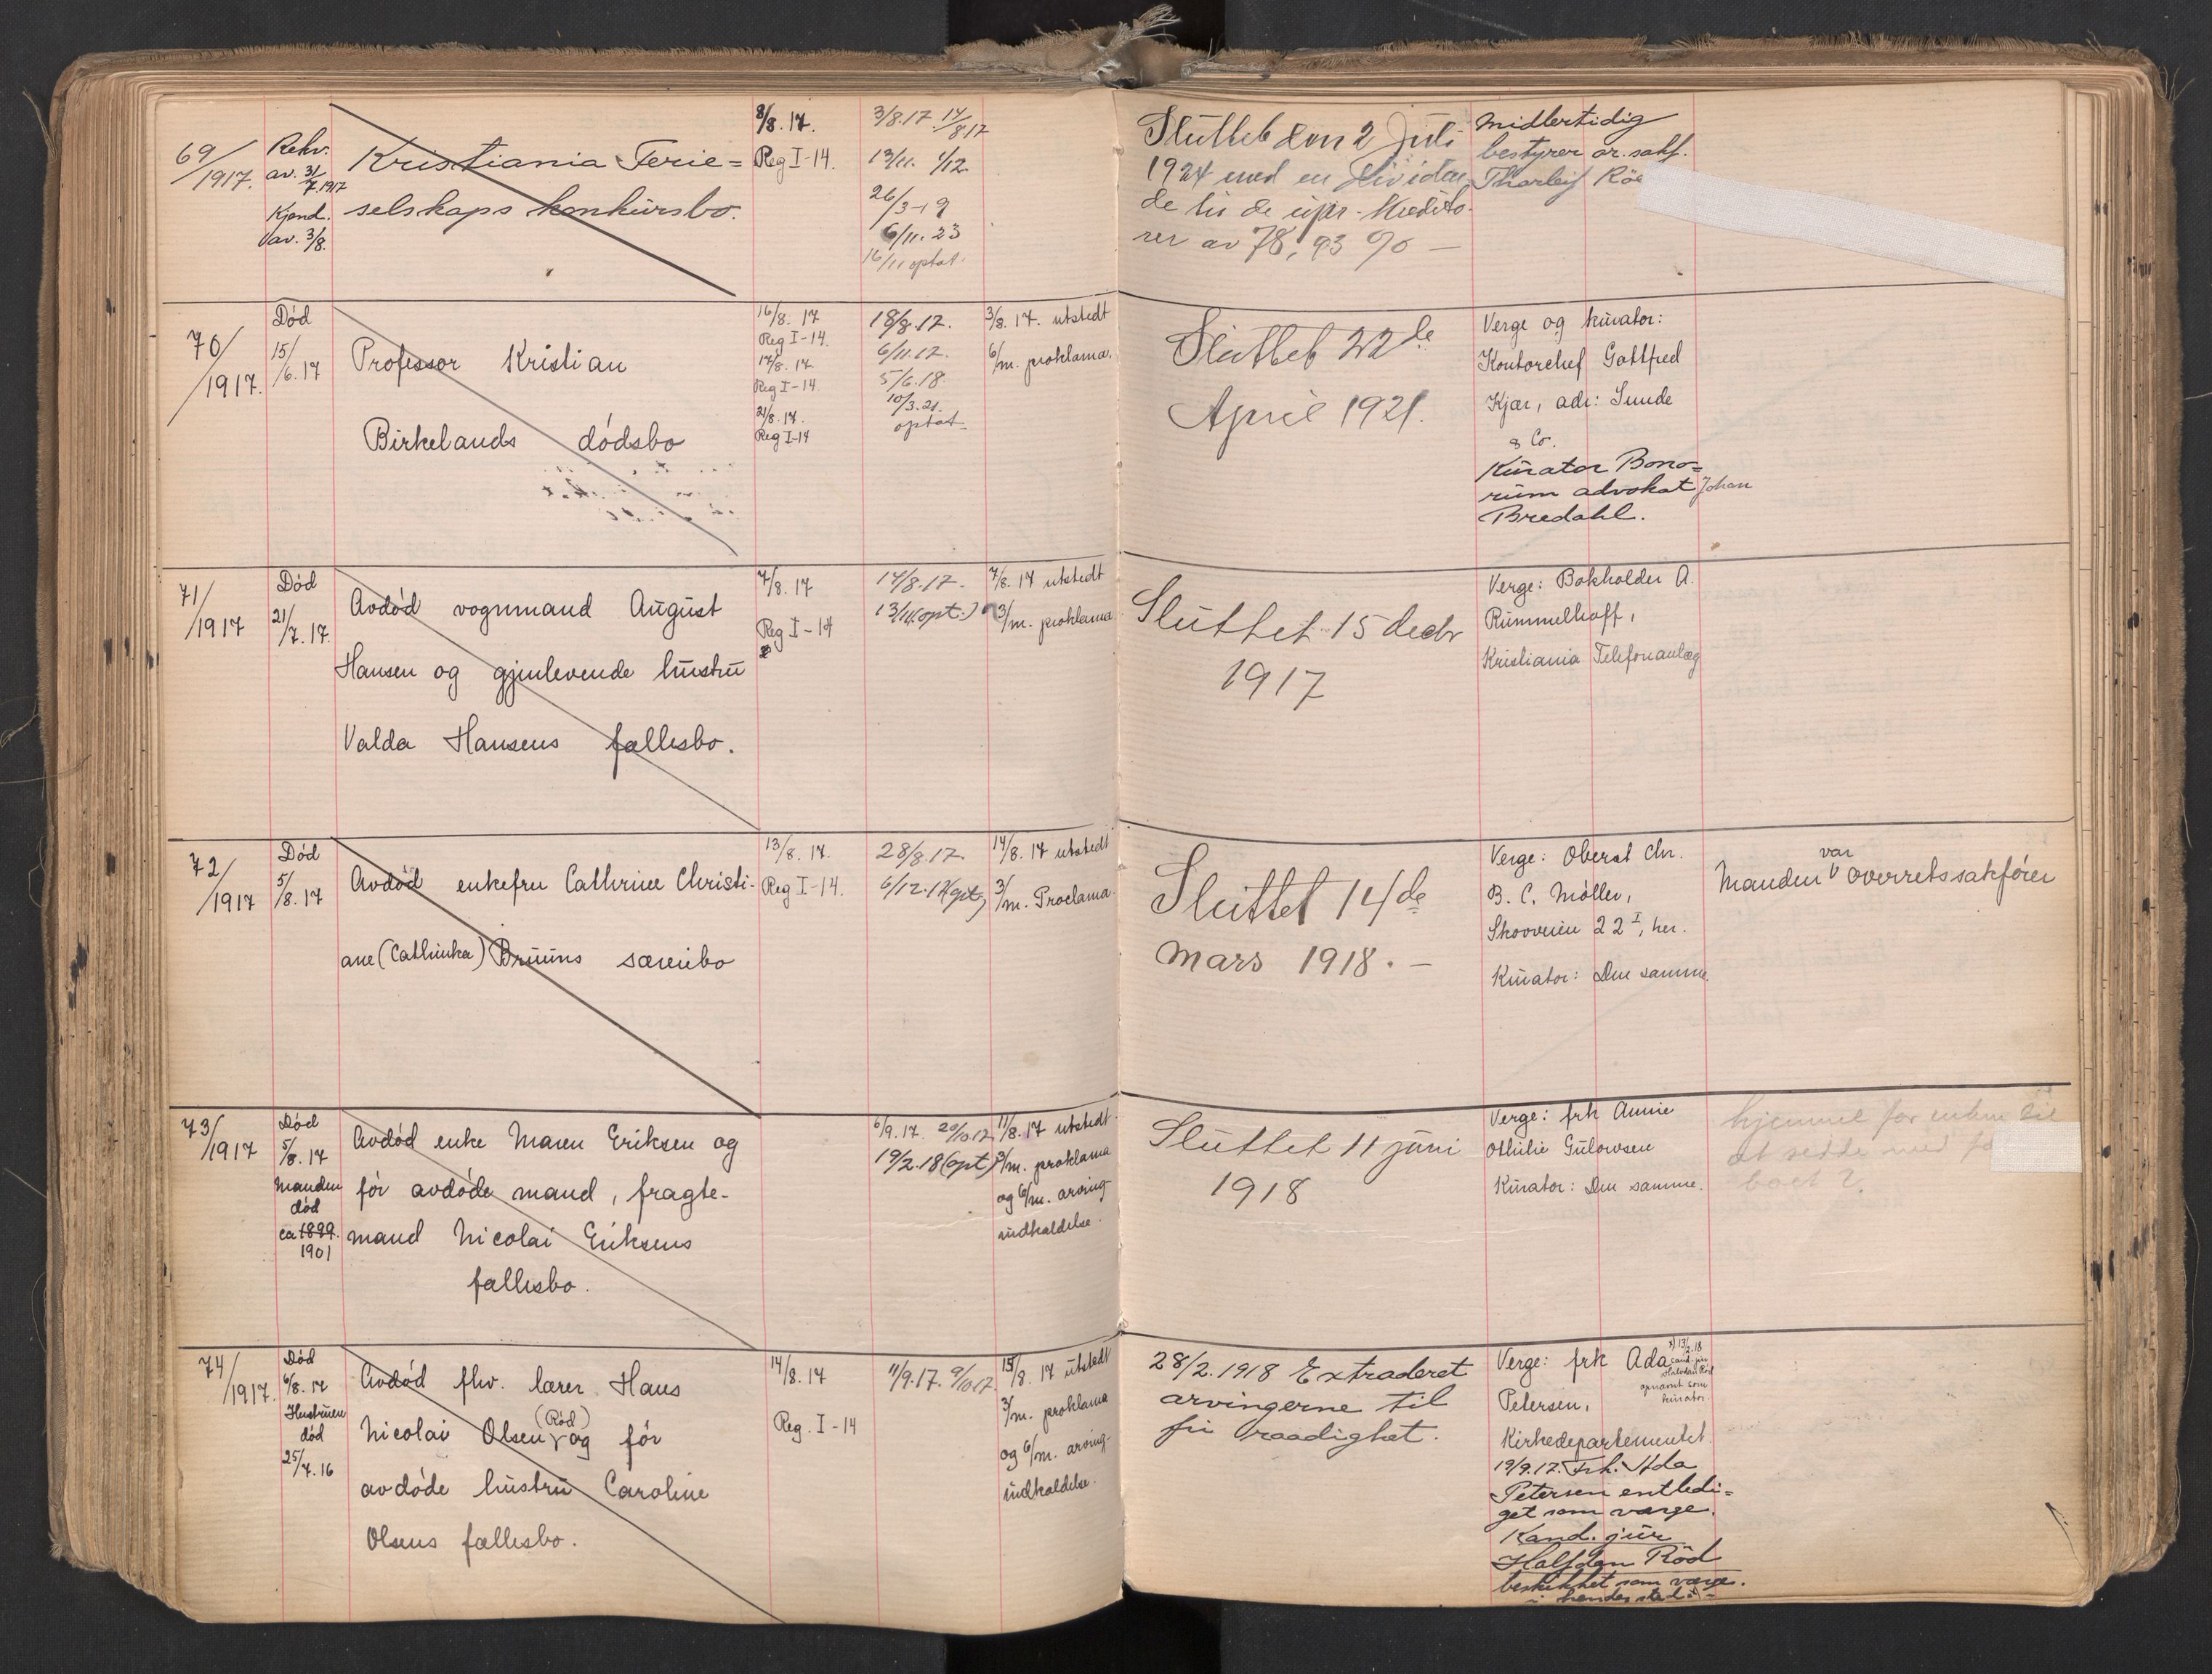 69/1917.
Rekv.
av. 31/7.1917
Kjend.
av. 3/8.
Kristiania Ferie=
selskaps konkursbo.
8/8.17.
Reg I-14.
3/8.17. 14/8.17
13/11. 1/12.
26/3-19
6/11.23
16/11 optat.
Sluttet den 2 Juli
1924 med en Dividen
de til de upr. Kredito-
rer av 78,93 % —
Midlertidig
bestyrer or.sakf.
Thorleif
70/1917.
Død
15/6.17
Professor Kristian
Birkelands dødsbo
16/8.17
Reg I-14.
17/8.17
Reg I-14
21/8.17.
Reg I-14
18/8.17.
6/11.17.
5/6.18.
10/3.21.
optat.
3/8.17. utstedt
6/m. proklama.
Sluttet 22de
April 1921.
Verge og kurator:
Kontorchef Gottfred
Kjær, adr: Sunde
& Co.
Kurator Bono=
rum advokat Johan
Bredahl.
71/1917
Død
21/7.17.
Avdød vognmand August
Hansen og gjenlevende hustru
Valda Hansens fællesbo.
7/8.17
Reg I-14
14/8.17.
13/11(opt.)
7/8.17 utstedt
3/m. proklama
Sluttet 15 decbr
1917
Verge: Bokholder A.
Rummelhoff,
Kristiania Telefonanlæg
72/1917
Død
5/8.17
Avdød enkefru Cathrine Christi-
ane (Cathinka) Bruuns særeibo
13/8.17.
Reg I-14.
28/8.17.
6/12.17(opt)
14/8.17 utstedt
3/m. Proclama
Sluttet 14de
Mars 1918. —
Verge: Oberst Chr.
B. C. Møller,
Skovveien 22 I, her.
Kurator: Den samme.
var
Manden overretssakfører
73/1917
Død
5/8.17
Manden
død
ca 1899.
1901
Avdød enke Maren Eriksen og
før avdøde mand, fragte-
mand Nicolai Eriksens
fællesbo.
6/9.17. 20/10.17
19/2.18(opt)
11/8.17 utstedt
3/m. proklama
og 6/m. arving-
indkaldelse.
Sluttet 11 juni
1918
Verge: frk Annie
Othilie Gulowsen
Kurator: Den samme.
hjemmel for enken til
at sidde med
boet?
74/1917.
Død
6/8.17
Hustruen
død
25/7.16
Avdød fhv. lærer Hans
(Rød)
Nicolai Olsen og før
avdøde hustru Caroline
Olsens fællesbo.
14/8.17
Reg. I-14
11/9.17. 9/10.17
15/8.17 utstedt
3/m. proklama
og 6/m. arving-
indkaldelse.
28/2.1918 Extraderet
arvingerne til
fri raadighet.
Verge: frk Ada
13/2.18
cand. jur
Halvdan Rød
opnævnt som
kurator
Petersen,
Kirkedepartementet.
19/9.17. Frk. Ada
Petersen entledi=
get som værge.
Kand. jur
Halfdan Rød
beskikket som værge
i hendes sted. –